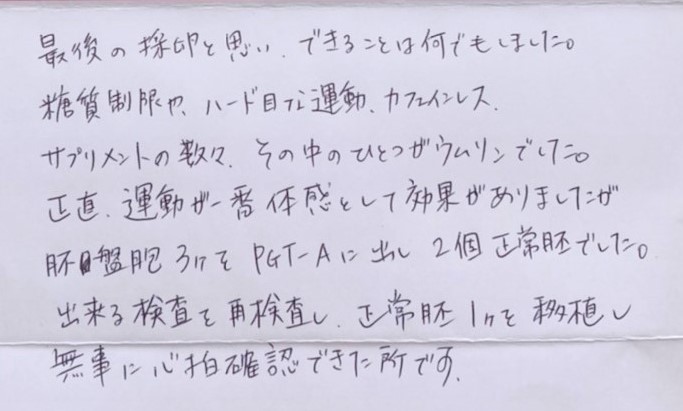 最後の採卵と思い、できることは何でもしました。
糖質制限や、ハード目な運動、カフェインレス、
サプリメントの数々、その中のひとつがウムリンでした。
正直、運動が一番体感として効果がありましたが
胚盤胞3ヶをPGT-Aに出し2個正常胚でした。
出来る検査を再検査し、正常胚1ヶを移植し
無事に心拍確認できた所です。